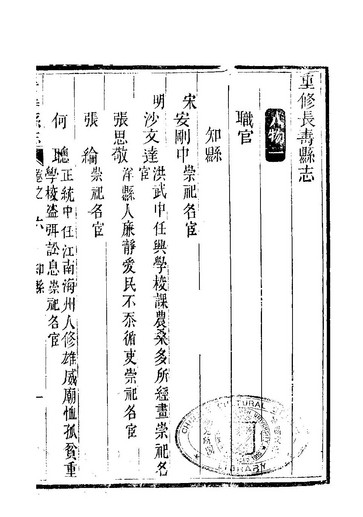 重修長壽縣志
人物一
職官
知縣
宋安剛中崇祀名宦
明沙文達洪武中任興學校課農桑多所經畫崇祀名
宦
張思敬洋縣人廉靜愛民不忝循吏崇祀名宦
張綸崇祀名宦
何聰正統中任江南海州人修雄威廟恤孤貧重
學校盜弭訟息崇祀名宦
卷之六 知縣 一
LIBRARY